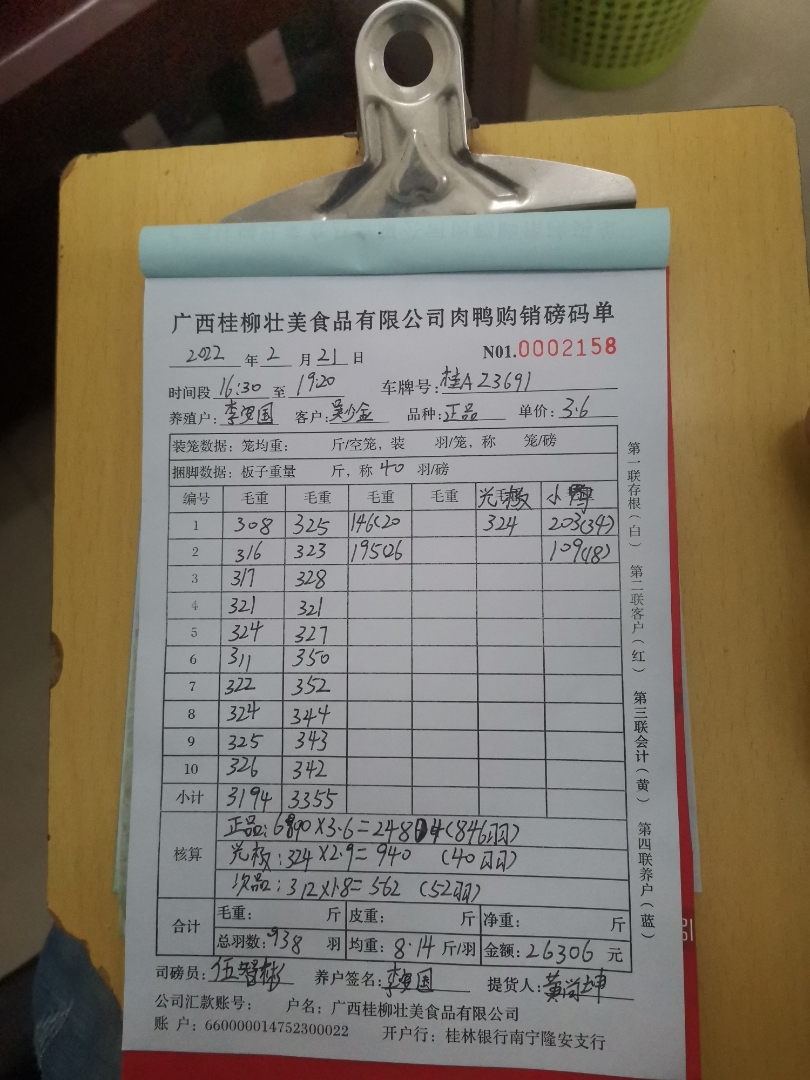 广西桂柳壮美食品有限公司肉鸭购销磅码单
2022 年 2 月 21 日 N01.0002158
时间段 16:30 至 19:20 车牌号: 桂A Z3691
养殖户: 李国 客户: 吴少金 品种: 正品 单价: 3.6
装笼数据: 笼均重: 斤/空笼, 装 羽/笼, 称 笼/磅
捆脚数据: 板子重量 斤, 称 40 羽/磅
编号 毛重 毛重 毛重 毛重 光板 小鸭
1 308 325 146(20 324 203(34)
2 316 323 195(26 109(18)
3 317 328
4 321 321
5 324 327
6 311 350
7 322 352
8 324 344
9 325 343
10 326 342
小计 3194 3355
核算 正品: 6890×3.6=24804(846羽)
光板: 324×2.9=940 (40羽)
次品: 312×1.8=562 (52羽)
合计 毛重: 斤 皮重: 斤 净重: 斤
总羽数: 938 羽 均重: 8.14 斤/羽 金额: 26306 元
司磅员: 伍智彬 养户签名: 李国 提货人: 黄坤
公司汇款账号: 户名: 广西桂柳壮美食品有限公司
账 户: 660000014752300022 开户行: 桂林银行南宁隆安支行
第一联存根(白) 第二联客户(红) 第三联会计(黄) 第四联养户(蓝)